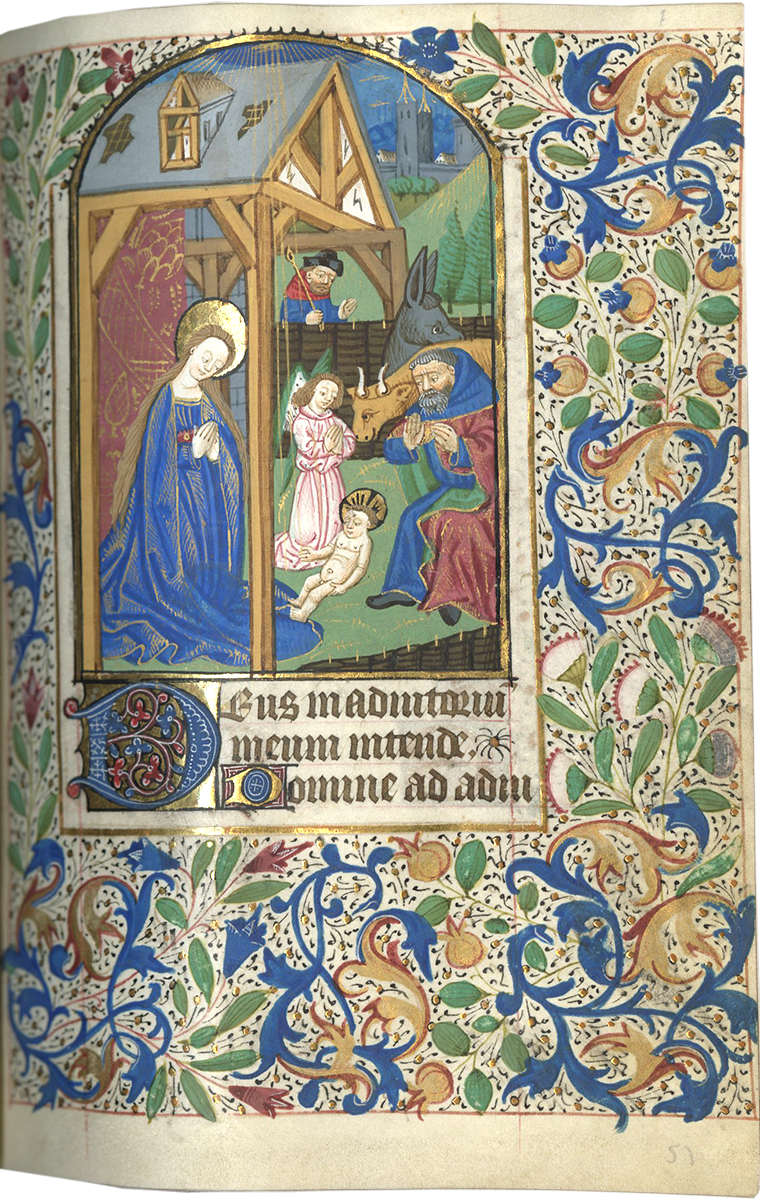 Deus in adiutoriu̅
meum intende.
Domine ad adiu
51